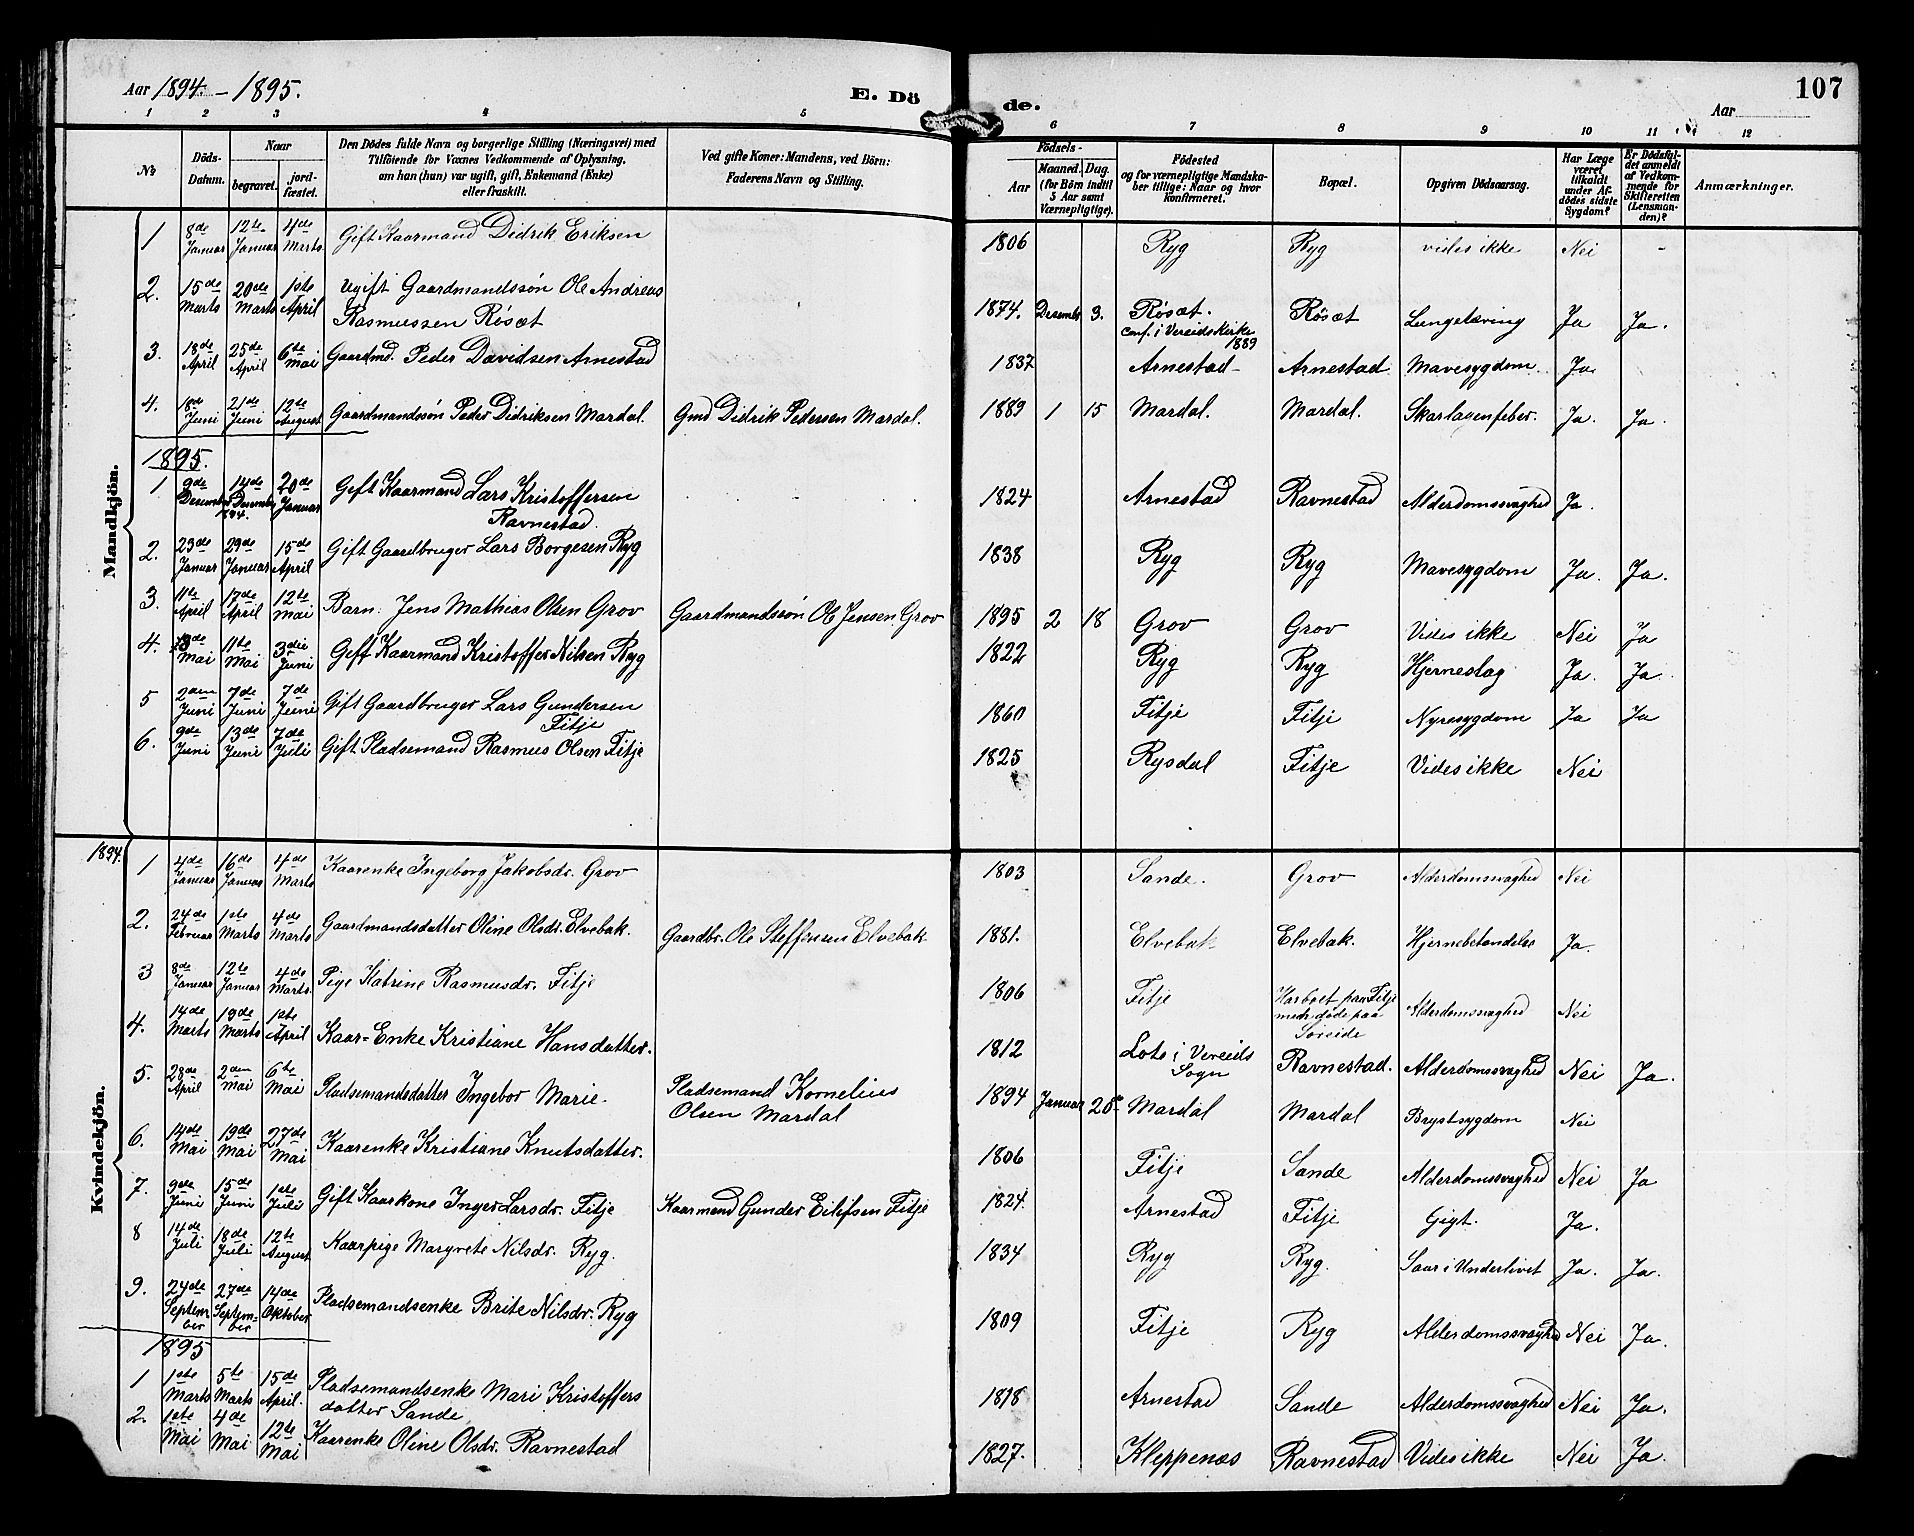 Aar 1894 - 1895.
E. Dö de.
Aar
107
1 2 3 4 5 6 7 8 9 10 11 12
No
Döds-Datum.
Naar
begravet.
jord-fæstet.
Den Dödes fulde Navn og borgerlige Stilling (Næringsvei) med
Tilföiende for Voxnes Vedkommende af Oplysning,
om han (hun) var ugift, gift, Enkemand (Enke)
eller fraskilt.
Ved gifte Koner: Mandens, ved Börn:
Faderens Navn og Stilling.
Födsels-
Aar
Maaned. Dag.
(for Börn indtil
5 Aar samt
Værnepligtige).
Födested
og for værnepligtige Mandska-
ber tillige: Naar og hvor
konfirmeret.
Bopæl.
Opgiven Dödsaarsag.
Har Læge
været
tilkaldt
under Af-
dödes sidste
Sygdom?
Er Dödsfal-
det anmeldt
af Vedkom-
mende for
Skifteretten
(Lensman-
den)?
Anmærkninger.
Mandkjön.
1 8de Januar 12te Januar 4de Marts Gift Kaarmand Didrik Eriksen 1806 Ryg Ryg vides ikke Nei -
2. 15de Marts 20de Marts 1ste April Ugift Gaardmandssøn Ole Andreas
Rasmussen Røsæt 1874. Desember 3. Røsæt. conf. i Vereids Kirke 1889 Røsæt Lungetæring Ja Ja.
3. 18de April 25de April 6te Mai Gaardmd. Peder Davidsen Arnestad 1837 Arnestad Arnestad Mavesygdom Ja
4. 18de Juni 21de Juni 12te August Gaardmandssøn Peder Didriksen Mardal. Gmd Didrik Pedersen Mardal. 1889 1 15 Mardal. Mardal. Skarlagensfeber. Ja. Ja.
1895.
1 9de Desember 14de Desember 1894. 20de Januar Gift Kaarmand Lars Kristoffersen
Ravnestad. 1824 Arnestad Ravnestad Alderdomssvaghed Ja.
2. 23de Januar 29de Januar 15de April Gift Gaardbruger Lars Borgesen Ryg 1838 Ryg Ryg Mavesygdom Ja. Ja.
3. 11te April 17de April 12te Mai Barn: Jens Mathias Olsen Grov Gaardmandssøn Ole Jensen Grov 1895 2 18 Grov Grov Vides ikke Nei Ja
4. 3de Mai 11te Mai 3die Juni Gift Kaarmand Kristoffer Nilsen Ryg 1822 Ryg Ryg Hjerneslag Ja. Ja
5 2den Juni 7de Juni 7de Juni Gift Gaardbruger Lars Gundersen
Fitje 1860 Fitje Fitje Nyresygdom Ja Ja
6. 9de Juni 13de Juni 7de Juli Gift Pladsemand Rasmus Olsen Fitje 1825 Rysdal Fitje Vides ikke Nei
Kvindekjön.
1894.
1 4de Januar 16de Januar 4de Marts Kaarenke Ingeborg Jakobsdr. Grov 1803 Sande. Grov Alderdomssvaghed Nei
2. 24de Februar 1ste Marts 4de Marts Gaardmandsdatter Oline Olsdr. Elvebak. Gaardbr. Ole Steffensen Elvebak 1881. Elvebak Elvebak. Hjernebetændelse Ja.
3 8de Januar 12te Januar 4de Marts. Pige Katrine Rasmusdr. Fitje 1806 Fitje Har boet paa Fitje
men døde paa
Søreide Alderdomssvaghed Nei
4. 14de Marts 19de Marts 1ste April Kaar-Enke Kristiane Hansdatter. 1812 Lote i Vereids
Sogn Ravnestad. Alderdomssvaghed Nei Ja.
5. 28de April 2den Mai 6te Mai Pladsemandsdatter Ingebor Marie. Pladsemand Kornelius
Olsen Mardal 1894 Januar Mardal Mardal Brystsygdom Nei
6. 14de Mai 19de Mai 27de Mai Kaarenke Kristiane Knutsdatter. 1806 Fitje Sande Alderdomssvaghed Nei Ja
7. 9de Juni 15de Juni 1ste Juli Gift Kaarkone Inger Larsdr. Fitje Kaarmand Gunder Eilifsen Fitje 1824. Arnestad Fitje Gigt. Ja.
8 14de Juli 18de Juli 12te August Kaarpige Margrete Nilsdr. Ryg. 1834 Ryg Ryg. Saar i Underlivet Ja. Ja.
9. 24de September 27de September 14de Oktober Pladsemandsenke Brite Nilsdr. Ryg 1809 Fitje Ryg Alderdomssvaghed Nei Ja.
1895
1 1ste Marts 5te Marts 15de April. Pladsemandsenke Mari Kristoffers
datter Sande 1818 Arnestad Sande Alderdomssvaghed Nei Ja.
2. 1ste Mai 4de Mai 12te Mai Kaarenke Oline Olsdr. Ravnestad 1827. Kleppenæs Ravnestad Vides ikke Nei Ja.